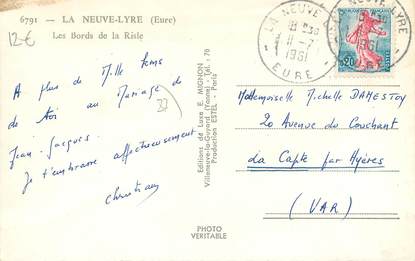 6791 - LA NEUVE-LYRE (Eure)
Les Bords de la Risle
12-€
A plus de Mille kms
de toi au Mariage de
Jean-Jacques.
Je t'embrasse affectueusement
Christian
Editions de Luxe E. MIGNON
Villeneuve-la-Guyard (Yonne) - Tél. : 70
Production ESTEL - Paris
PHOTO
VERITABLE
LA NEUVE-LYRE
EURE
1961
LA NEUVE-LYRE
1961
0,20
Mademoiselle Michelle DAMESTOY
20 Avenue du Couchant
La Capte par Hyères
(VAR)